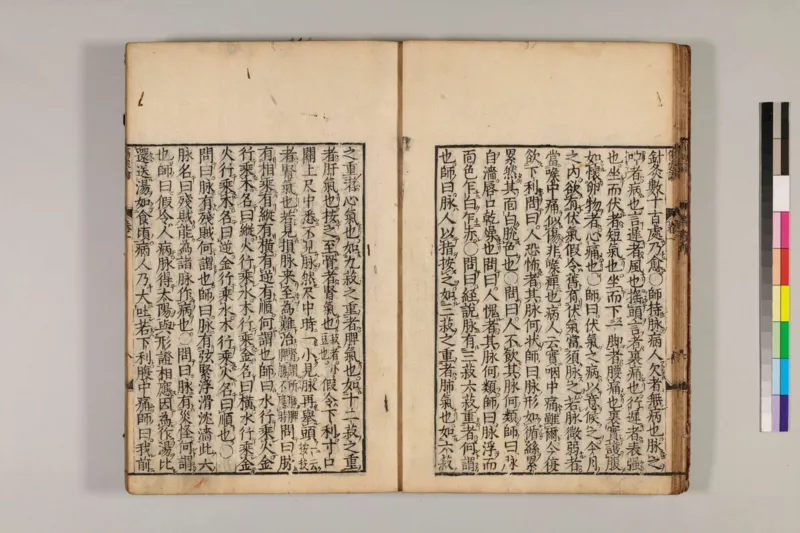 針灸數十百處乃愈○師持脉病人欠者無病也脉之
呻者病也言遲者風也搖頭言者裏痛也行遲者表強
也坐而伏者短氣也坐而下一脚者腰痛也裏實護腹
如懷卵物者心痛也○師曰伏氣之病以意候之今月
之內欲有伏氣假令舊有伏氣當須脉之若脉微弱者
當喉中痛似傷非喉痺也病人云實咽中痛雖爾今復
欲下利問曰人恐怖者其脉何狀師曰脉形如循絲累
累然其面白脫色也○問曰人不飲其脉何類師曰脉
自濇唇口乾燥也問曰人愧者其脉何類師曰脉浮而
面色乍白乍赤○問曰経說脉有三菽六菽重者何謂
也師曰脉人以指按之如三菽之重者肺氣也如六菽
之重者心氣也如九菽之重者脾氣也如十二菽之重
者肝氣也按之至骨者腎氣也 假令下利寸口
關上尺中悉不見脉然尺中時一小見脉再舉頭
者腎氣也若見損脉来至為難治 問曰脉
有相乘有縱有橫有逆有順何謂也師曰水行乘火金
行乘木名曰縱火行乘水木行乘金名曰橫水行乘金
火行乘木名曰逆金行乘水木行乘火名曰順也○
問曰脉有殘賊何謂也師曰脉有弦緊浮滑沈濇此六
脉名曰殘賊能為諸脉作病也○問曰脉有災怪何謂
也師曰假令人病脉得太陽與形證相應因為作湯比
還送湯如食頃病人乃大吐若下利腹中痛師曰我前